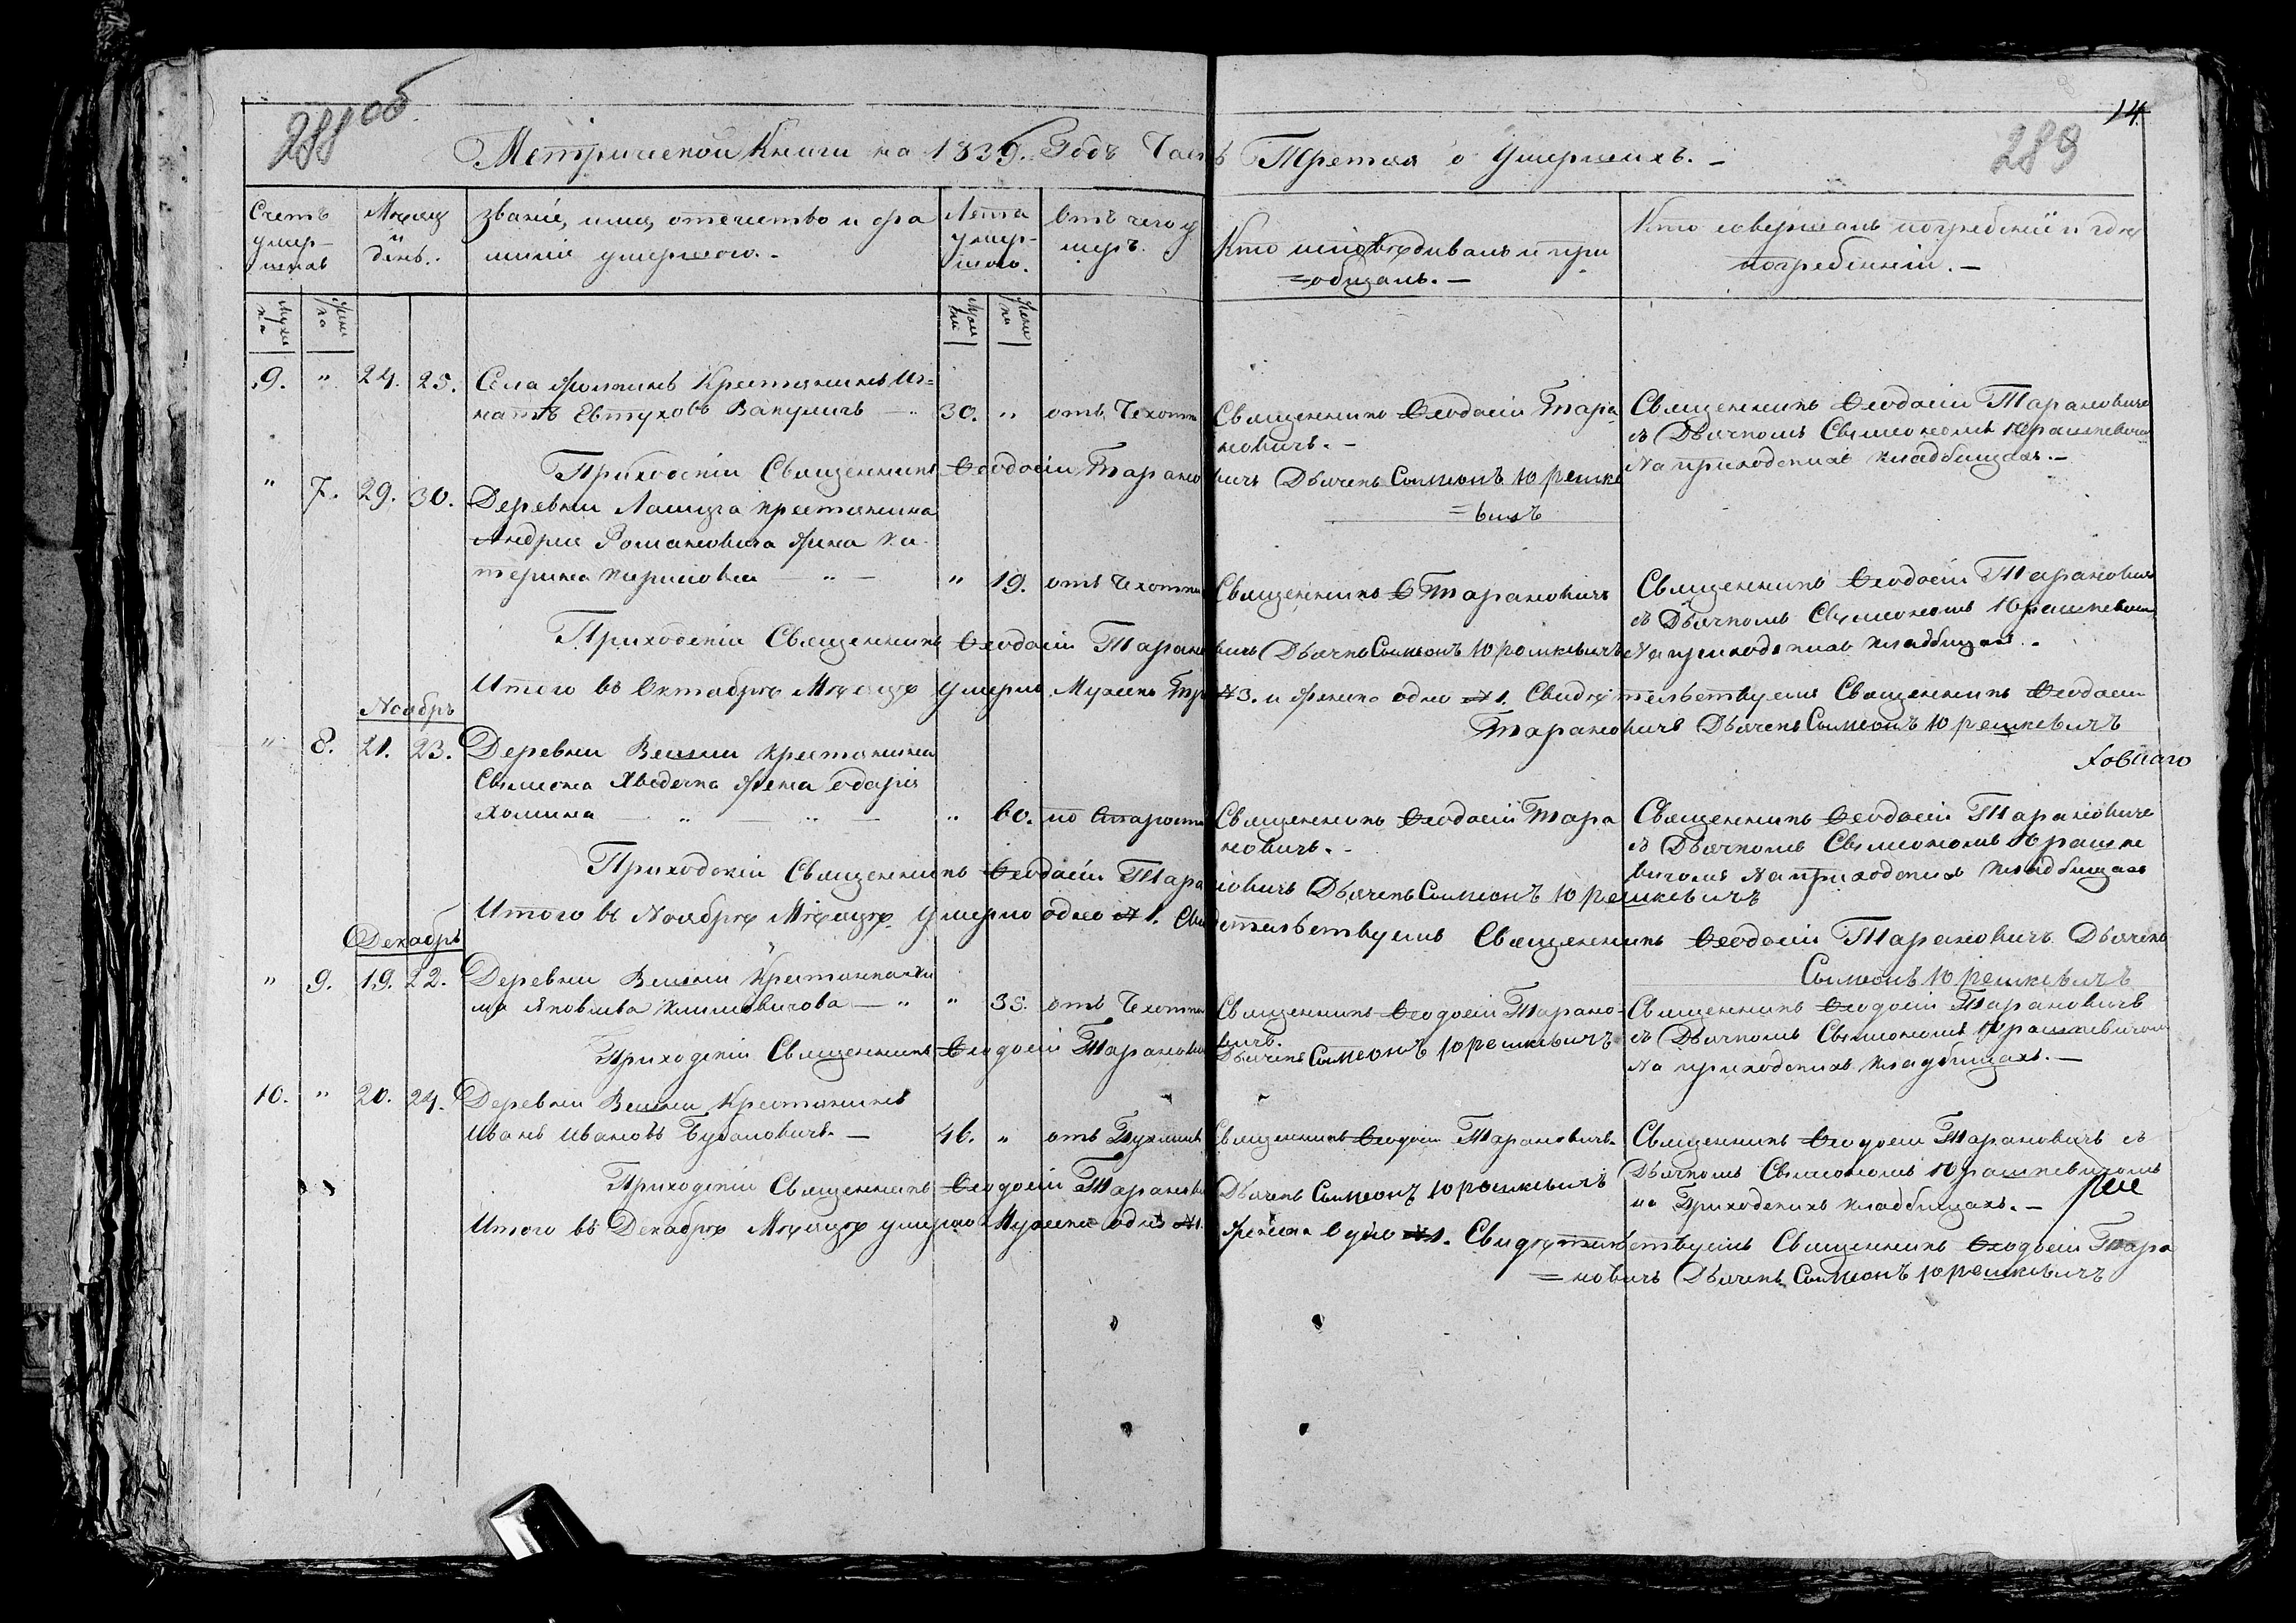 288 об
14.
289
Метрической Книги на 1839. Годъ Часть Третая о Умершихъ. –
Счетъ умер- шихъ
Мѣсяц и день.
Званіе, имя, отечество и фа милія умершаго. –
Лѣта умер- шаго.
Отъ чего у меръ.
Кто исповѣдивалъ и прі =общалъ. –
Кто совершалъ погребеніи и гдѣ погребенніи. –
Муже ска
Женс ка
Муж ска
Женс ка
9. " 24. 25. Села Крестянинъ Иг=
натъ Евтуховъ Вакуличъ — " 30. " отъ Чехотки
Священникъ Ѳеодосій Тара
новичъ. –
Священникъ Ѳеодосій Тарановичъ
съ Дьячкомъ Сѵмеономъ Юрашкевичо
На приходскихъ кладбищахъ. –
Приходскій Священникъ Ѳеодосій Таранович Дьячекъ Симеонъ Юрешке
=вичъ
" 7. 29. 30. Деревни крестянина
Андрея Романовича жена Ка
терина Кирилова — " — " 19. отъ Чехотки
Священникъ Ѳ Тарановичъ
Священникъ Ѳеодосій Тарановичъ
съ Дьячкомъ Сѵмеономъ Юрашкевич
На приходскихъ кладбищахъ. -
Приходскій Священникъ Ѳеодосій Тарановичъ Дьячекъ Симеонъ Юрешкевичъ
Итого въ Октябрѣ Мѣсяцѣ умерло Мужска Тр №3. и женска одно №1. Свидѣтельствуемъ Священникъ Ѳеодосій
Тарановичъ Дьячекъ Симеонъ Юрешкевичъ
Ноябрь
" 8. 21. 23. Деревни Велки крестянина
Сѵмеона жена Одарія
Хомина — " — — " 60. по Старости
Священникъ Ѳеодосій Тара
новичъ. -
Священникъ Ѳеодосій Тарановичъ
съ Дьячкомъ Сѵмеономъ Юрашке
вичомъ На приходскихъ кладбищахъ
Приходскій Священникъ Ѳеодосій Тарановичъ Дьячекъ Симеонъ Юрешкевичъ
Итого въ Ноябрѣ Мѣсяцѣ умерло одно №1. Свидѣтельствуемъ Священникъ Ѳеодосій Тарановичъ Дьячекъ
Симеонъ Юрешкевичъ
Декабрь
" 9. 19. 22. Деревни Велкіи Крестянка
Яковлева Климовичова — " " 35. отъ Чехотки
Священникъ Ѳеодосій Тарано-
вичъ.
Священникъ Ѳеодосій Тарановичъ
съ Дьячкомъ Сѵмеономъ Юрашкевичом
На приходскихъ кладбищахъ. —
Приходскій Священникъ Ѳеодосій Тарановичъ Дьячекъ Симеонъ Юрешкевичъ
10. " 20. 24. Деревни Велки Крестянинъ
Иванъ Ивановъ — 46. " отъ
Священникъ Ѳеодосій Тарановичъ.
Священникъ Ѳеодосій Тарановичъ съ
Дьячкомъ Сѵмеономъ Юрашкевичомъ
на Приходскихъ кладбищахъ. –
Приходскій Священникъ Ѳеодосій Таранови Дьячекъ Симеонъ Юрешкевичъ
Итого въ Декабрѣ Мѣсяцѣ умерло Мужска одно №1. женска одно №1. Свидѣтельствуемъ Священникъ Ѳеодосій Тара
=новичъ Дьячекъ Симеонъ Юрешкевичъ